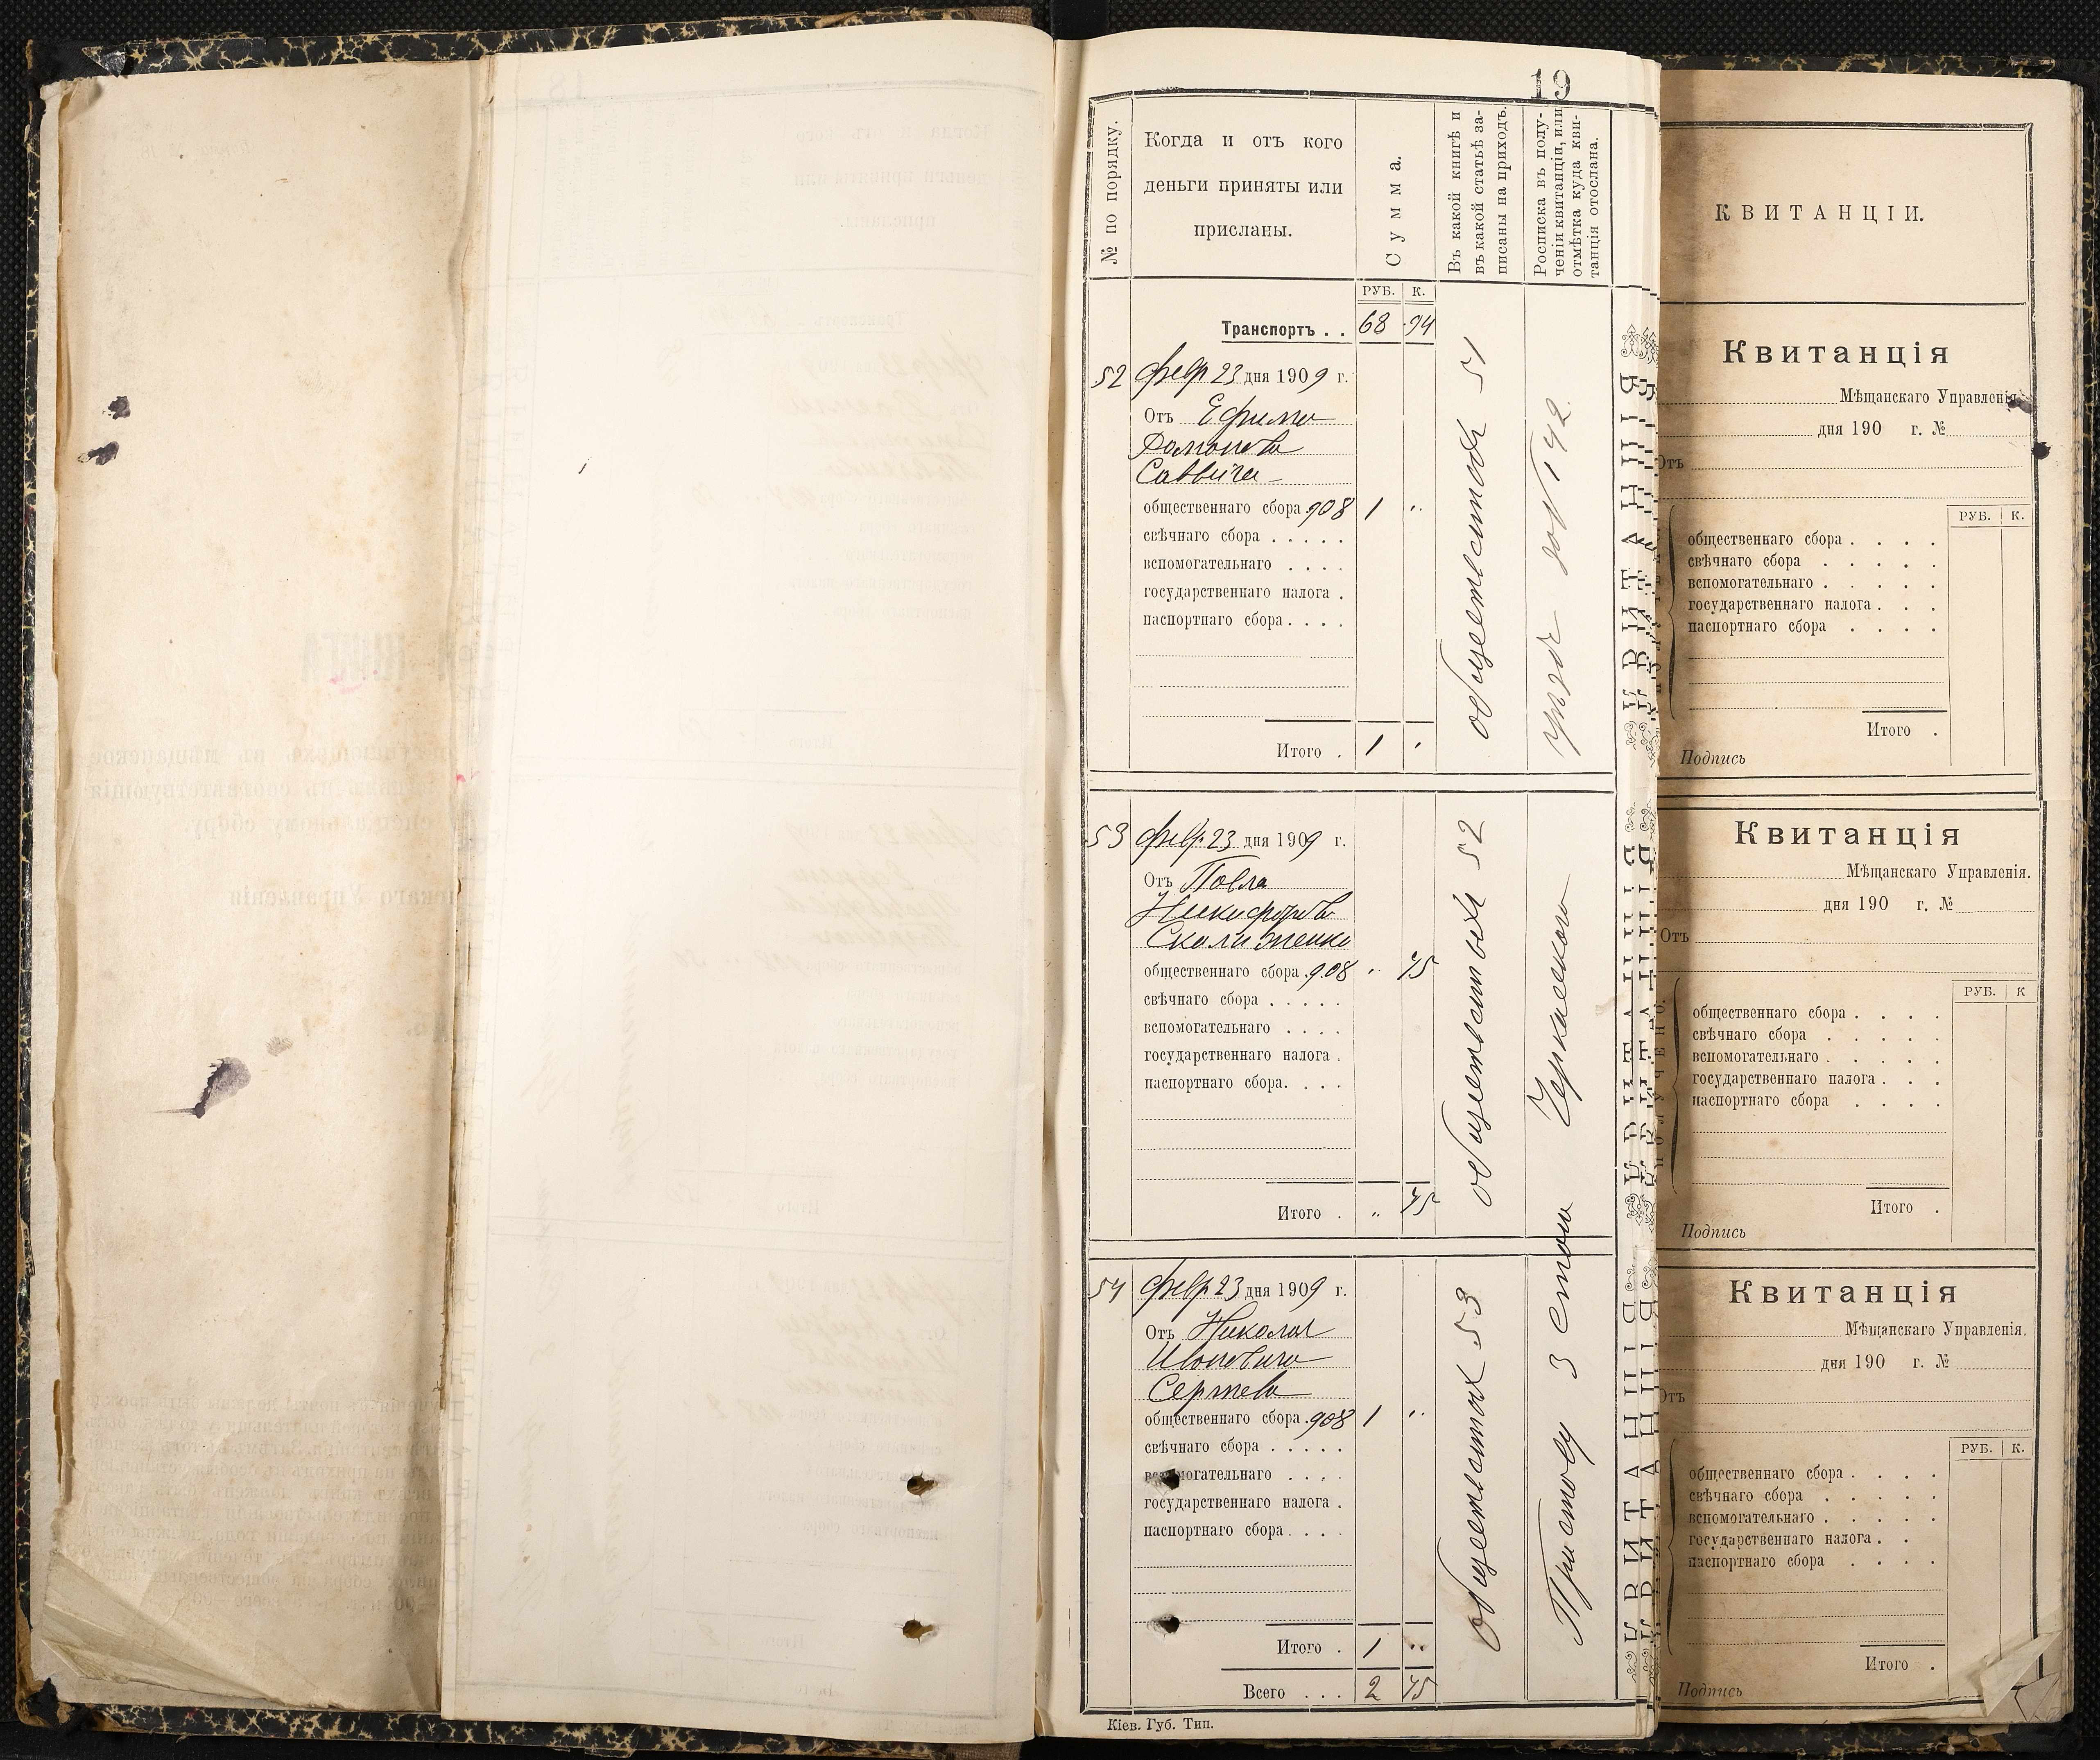 19
№ по порядку.
Когда и отъ кого
деньги приняты или
присланы.
Сумма.
Въ какой книгѣ и
въ какой статьѣ за-
писаны на приходъ.
Росписка въ полу-
ченіи квитанціи, или
отмѣтка куда кви-
танція отослана.
РУБ. К.
Транспортъ . . 68 94
52 февр 23 дня 1909 г.
Отъ Ефима
Саввича
общественнаго сбора 908 1 "
свѣчнаго сбора . . . . .
вспомогательнаго . . . .
государственнаго налога .
паспортнаго сбора . . . .
Итого . 1 "
53 февр. 23 дня 1909 г.
Отъ Павла
Никифорова
общественнаго сбора 908 " 75
свѣчнаго сбора . . . . .
вспомогательнаго . . . .
государственнаго налога .
паспортнаго сбора . . . .
Итого . " 75
54 февр 23 дня 1909 г.
Отъ Николая
Ивановича
общественнаго сбора 908 1 "
свѣчнаго сбора . . . . .
вспомогательнаго . . . .
государственнаго налога .
паспортнаго сбора . . . .
Итого . 1 "
Всего . . . 2 75
Кіев. Губ. Тип.
51
52
53
Приставу 3 стана Черкасскаго
КВИТАНЦІИ.
Квитанція
Мѣщанскаго Управленія
дня 190 г. №
Отъ
РУБ. К.
общественнаго сбора . . . .
свѣчнаго сбора . . . . .
вспомогательнаго . . . . .
государственнаго налога . . .
паспортнаго сбора . . . .
Итого .
Подпись
Квитанція
Мѣщанскаго Управленія.
дня 190 г. №
Отъ
РУБ. К
общественнаго сбора . . . .
свѣчнаго сбора . . . . .
вспомогательнаго . . . . .
государственнаго налога . . .
паспортнаго сбора . . . .
Итого .
Подпись
Квитанція
Мѣщанскаго Управленія.
дня 190 г. №
Отъ
РУБ. К.
общественнаго сбора . . . .
свѣчнаго сбора . . . . .
вспомогательнаго . . . . .
государственнаго налога . .
паспортнаго сбора . . . .
Итого .
Подпись